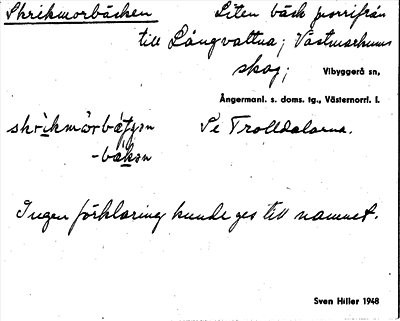 Skrikmorbäcken Liten bäck norrifrån
till Långvattna; Västmarkums
skog; Vibyggerå sn,
Ångermanl. s. doms. tg., Västernorrl. l.
Se Trolldalarna.
Ingen förklaring kunde ges till namnet.
Sven Hiller 1948